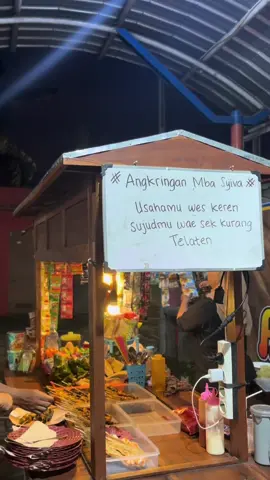 # Angkringan Mba Syiva #
Usahamu wes keren
sujudmu wae sek kurang
Telaten